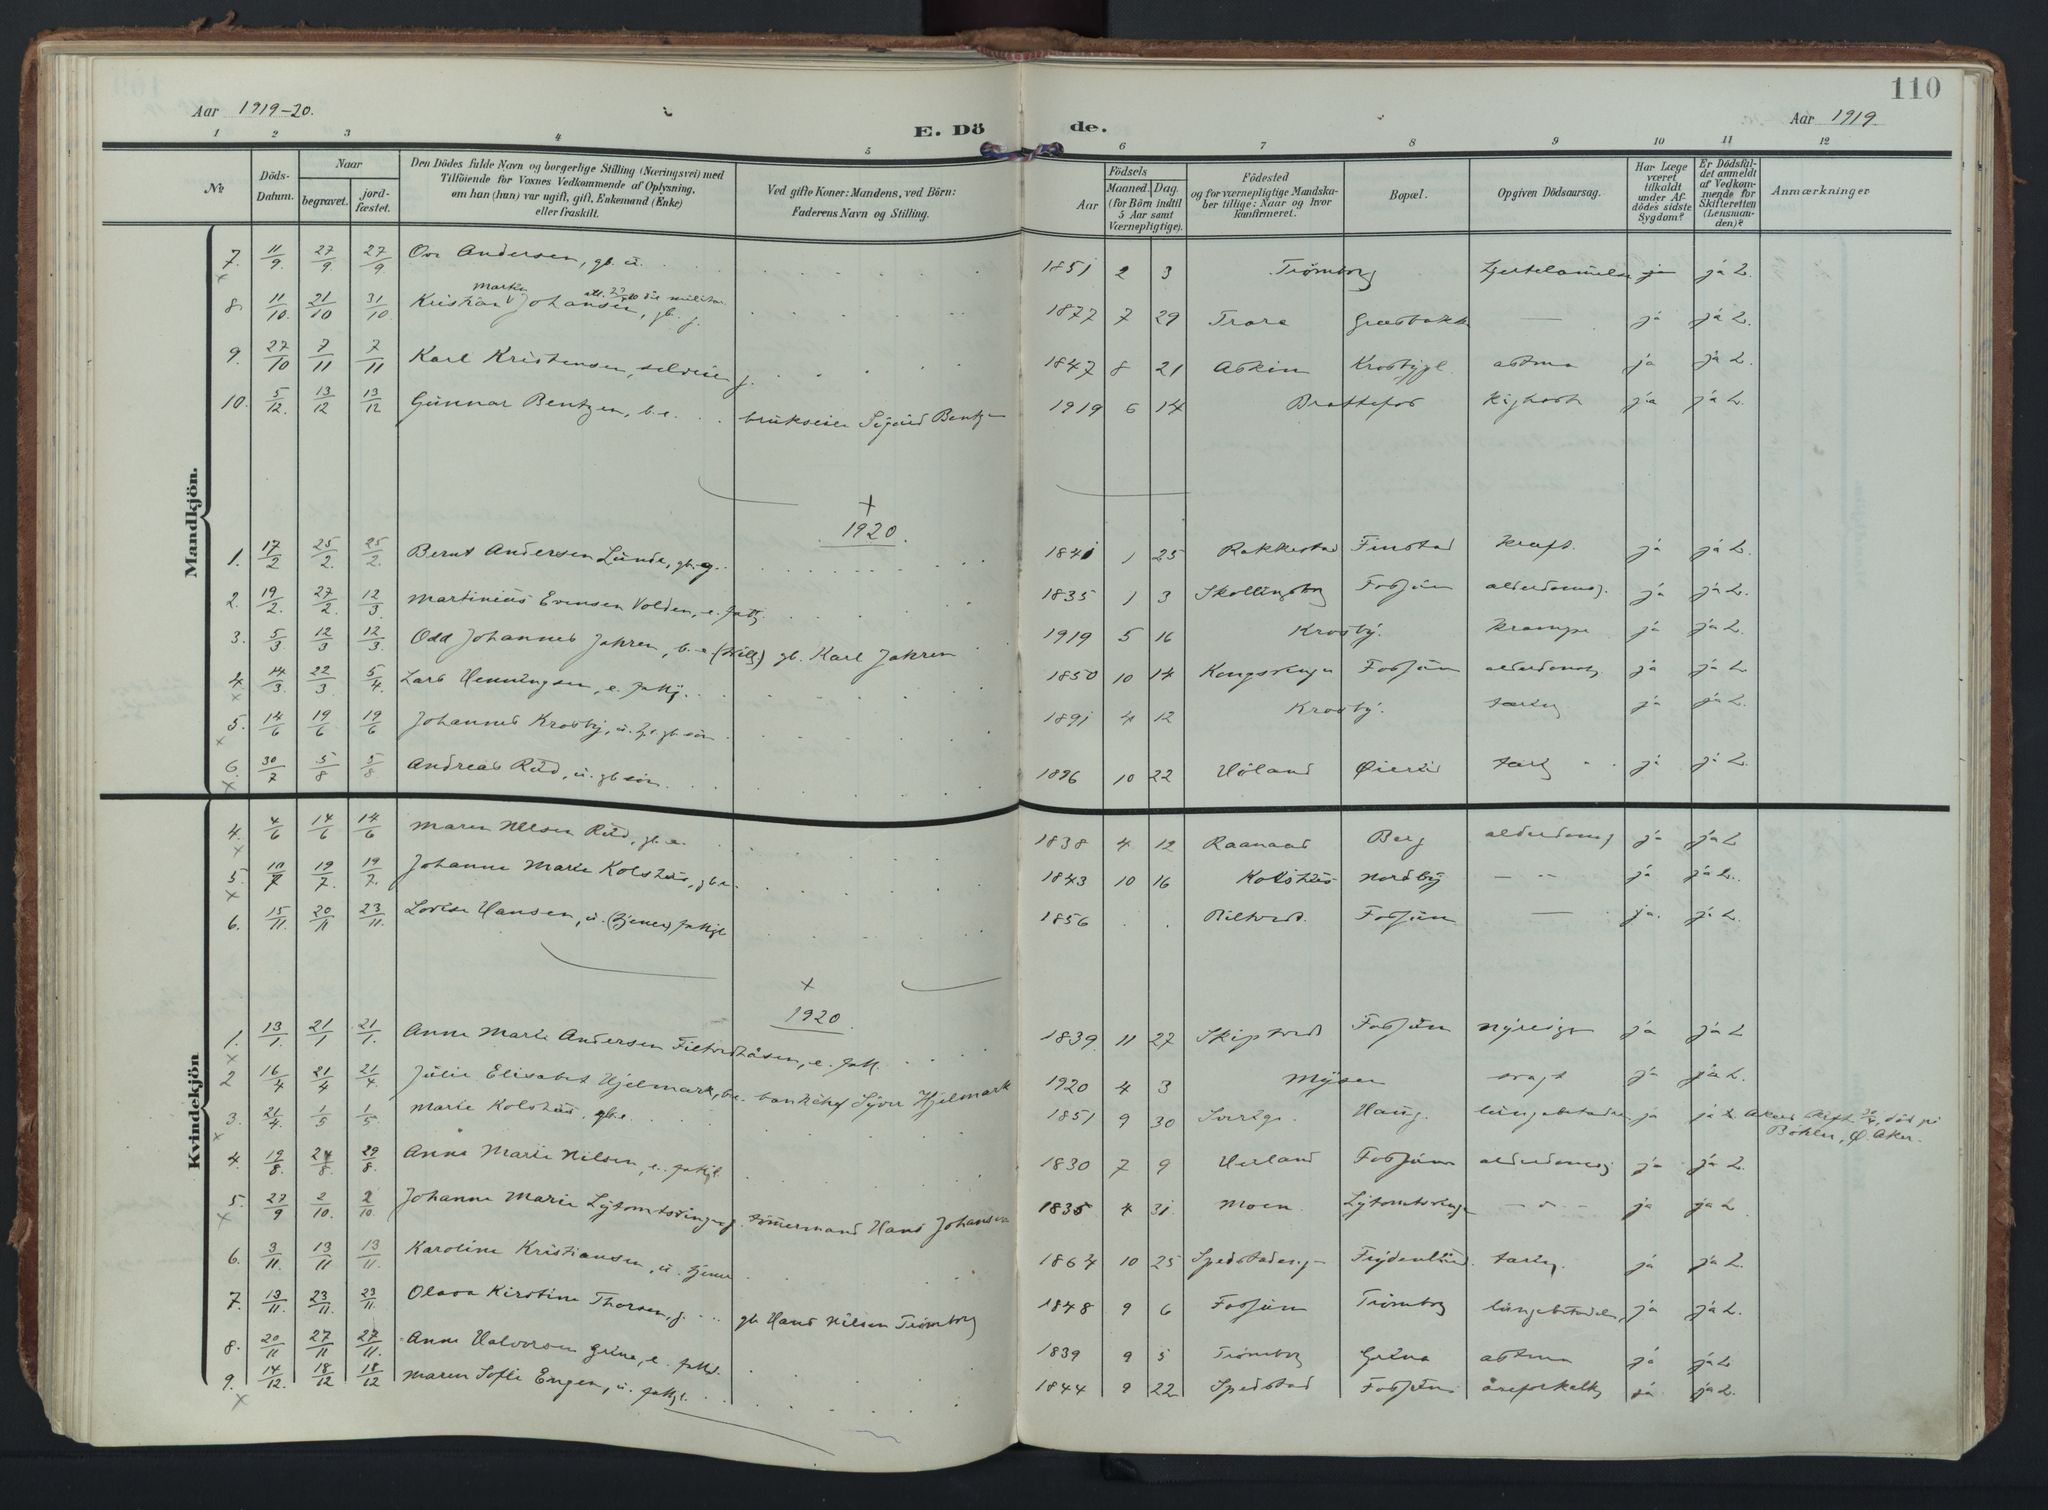 110
Aar 1919-20.
E. Dö de.
Aar 1919.
1 2 3 4 5 6 7 8 9 10 11 12
№
Döds-Datum.
Naar
begravet.
jord-fæstet.
Den Dödes fulde Navn og borgerlige Stilling (Næringsvei) med
Tilföiende for Voxnes Vedkommende af Oplysning,
om han (hun) var ugift, gift, Enkemand (Enke)
eller fraskilt.
Ved gifte Koner: Mandens, ved Börn:
Faderens Navn og Stilling.
Födsels
Aar
Maaned. Dag.
(for Börn indtil
5 Aar samt
Værnepligtige).
Födested
og for værnepligtige Mandska-
ber tillige: Naar og hvor
konfirmeret.
Bopæl.
Opgiven Dödsaarsag.
Har Læge
været
tilkaldt
under Af-
dödes sidste
Sygdom?
Er Dödsfal-
det anmeldt
af Vedkom-
mende for
Skifteretten
(Lensman-
den)?
Anmærkninger
Mandkjön.
7. 11/9 27/9 27/9 Ove Andersen, gb. u. 1851 2 3 Trømborg ja ja L.
8. 11/10 21/10 31/10 Kristian Martin Johansen, gb. g. 1877 7 29 Trara ja ja L.
9. 27/10 7/11 7/11 Karl Kristensen, selveier g. 1847 8 21 Askim astma ja ja L.
10. 5/12 13/12 13/12 Gunnar Bentzen, b. e. brukseier Sigurd Bentzen 1919 6 14 Brattefos Kighoste ja ja L.
1920.
1. 17/2 25/2 25/2 Bernt Andersen Lunde, gb. g. 1841 1 25 Rakkestad Finstad kræft. ja ja L.
2. 19/2 27/2 12/3 Martinius Evensen Volden, e. 1835 1 3 Fosjum alderdomsv. ja ja L.
3. 5/3 12/3 12/3 Odd Johannes Jahren, b. e (tvill) gb. Karl Jahren 1919 5 16 Krosby. krampe ja ja L.
4. 14/3 22/3 5/4 Lars Henningsen, e. 1850 10 14 Kongsvinger Fosjum ja ja L.
5. 14/6 19/6 19/6 Johannes Krosby, u. gb. søn 1891 4 12 Krosby. tæring ja ja L.
6. 30/7 5/8 5/8 Andreas Rud, u. gb søn. 1896 10 22 Høland tæring ja ja L.
Kvindekjön
4. 4/6 14/6 14/6 Maren Nilsen Rud, gb. e. 1838 4 12 Berg ja ja L
5. 10/7 19/7 19/7 Johanne Marie Kolshus, gb. e. 1843 10 16 Kolshus Nordby - " - ja ja L.
6. 15/11 20/11 23/11 Lovise Hansen, u. (tjener) 1856 Fosjum ja. ja L.
1920.
1. 13/1 21/1 21/1 Anne Marie Andersen, e. 1839 11 27 Skiptvedt Fosjum ja ja L
2 16/4 21/4 21/4 Julie Elisabet Hjelmark, b. e. bankchef Syver Hjelmark 1920 4 3 Mysen svagt ja ja L.
3. 21/4 1/5 1/5 Marie Kolshus, gb. e. 1851 9 30 Sverige. Haug. ja ja L Akers, død på
Bøhler, Ø. Aker.
4. 19/8 24/8 29/8 Anne Marie Nilsen, e. 1830 7 9 Herland Fosjum ja ja L.
5. 27/9 2/10 2/10 Johanne Marie Lytomtsvingen g. tømmermand Hans Johansen 1835 4 31 Moen. Lytomtsvingen ja ja L
6. 3/11 13/11 13/11 Karoline Kristiansen, u. tjener 1864 10 25 Frydenlund. tæring. ja ja L.
7. 13/11 23/11 23/11 Olava Kirstine Thorsen, g. gb Hans Nilsen Trømborg 1848 9 6 Fosjum Trømborg ja ja L.
8. 20/11 27/11 27/11 Anne Halvorsen Grina, e. 1839 9 5 Trømborg Grina astma ja ja L.
9. 14/12 18/12 18/12 Maren Sofie Engen, u. 1844 9 22 Spedstad Fosjum åreforkalkn ja ja L.